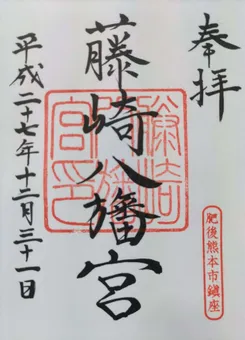 奉拝
肥後熊本市鎮座
藤崎八旛宮
藤崎八旛宮印
平成二十七年十二月三十一日